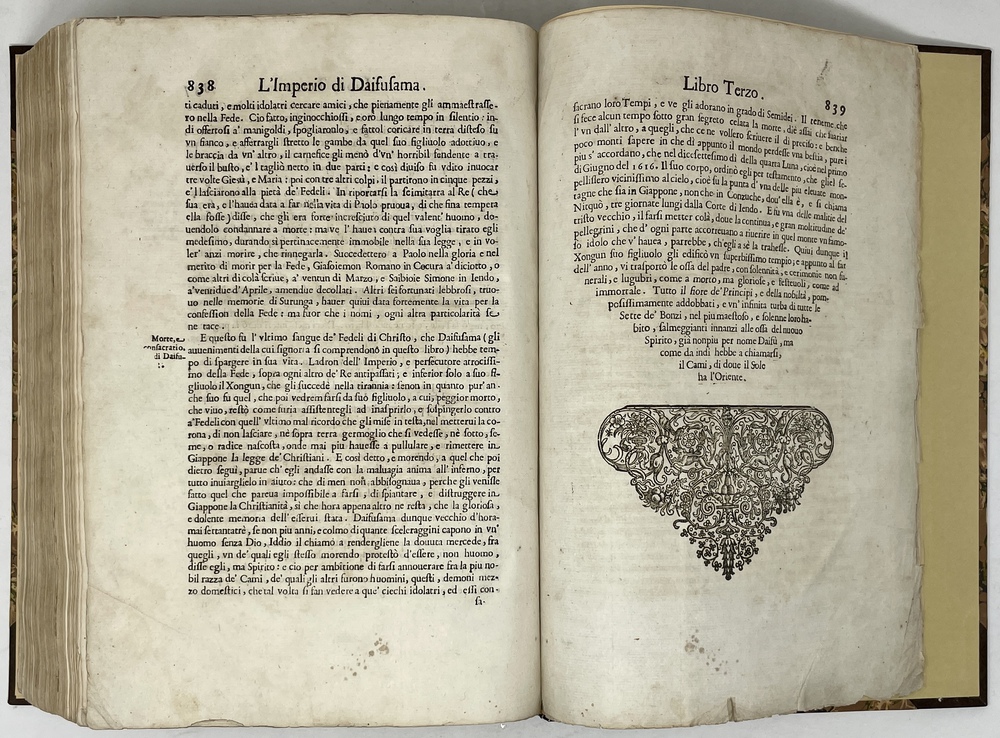 838 L'Imperio di Daifusama.
ti caduti, e molti idolatri cercare amici, che pienamente gli ammaestrasse-
ro nella Fede. Cio fatto, inginocchiossi, e orò lungo tempo in silentio: in-
di offertosi a' manigoldi, spogliaronlo, e fattol coricare in terra disteso su
vn fianco, e afferratgli stretto le gambe da quel suo figliuolo adottiuo, e
le braccia da vn' altro, il carnefice gli menò d'vn' horribil fendente a tra-
uerso il busto, e'l tagliò netto in due parti: e così diuiso fu vdito inuocar
tre volte Giesù, e Maria: poi con tre altri colpi, il partirono in cinque pezzi,
e'l lasciarono alla pietà de' Fedeli. In riportarsi la scimitarra al Re (che
sua era, e l'hauea data a far nella vita di Paolo pruoua, di che fina tempera
ella fosse) disse, che gli era forte incresciuto di quel valent' huomo, do-
uendolo condannare a morte: ma ve l' hauea contra sua voglia tirato egli
medesimo, durando sì pertinacemente immobile nella sua legge, e in vo-
ler' anzi morire, che rinnegarla. Succedettero a Paolo nella gloria e nel
merito di morir per la Fede, Giafoiemon Romano in Cocura a' diciotto, o
come altri di colà scriue, a' ventun di Marzo, e Saibioie Simone in Iendo,
a'ventidue d'Aprile, amendue decollati. Altri sei fortunati lebbrosi, truo-
uo nelle memorie di Surunga, hauer quiui data fortemente la vita per la
confession della Fede: ma fuor che i nomi, ogni altra particolarità se
ne tace.
Morte, e
consacratio.
di Daifu-
E questo fu l' vltimo sangue de' Fedeli di Christo, che Daifusama (gli
auuenimenti della cui signoria si comprendonò in questo libro) hebbe tem-
po di spargere in sua vita. Ladron dell' Imperio, e persecutore atrocissi-
mo della Fede, sopra ogni altro de' Re antipassati; e inferior solo a suo fi-
gliuolo il Xongun, che gli succedè nella tirannia: senon in quanto pur' an-
che suo fu quel, che poi vedrem farsi da suo figliuolo, a cui, peggior morto,
che viuo, restò come furia assistentegli ad inasprirlo, e sospingerlo contro
a'Fedeli con quell' vltimo mal ricordo che gli mise in testa, nel metterui la co-
rona, di non lasciare, nè sopra terra germoglio che si vedesse, nè sotto, se-
me, o radice nascosta, onde mai piu hauesse a pullulare, e rimettere in
Giappone la legge de' Christiani. E così detto, e morendo, a quel che poi
dietro seguì, parue ch' egli andasse con la maluagia anima all' inferno, per
tutto inuiarglielo in aiuto: che di men non abbisognaua, perche gli venisse
fatto quel che pareua impossibile a farsi, di spiantare, e distruggere in
Giappone la Christianità, sì che hora appena altro ne resta, che la gloriosa,
e dolente memoria dell' esserui stata. Daifusama dunque vecchio d'hora-
mai settantatrè, se non piu anni, e colmo di quante sceleraggini capono in vn'
huomo senza Dio, Iddio il chiamo a rendergliene la douuta mercede, fra
quegli, vn de' quali egli stesso morendo protestò d'essere, non huomo,
disse egli, ma Spirito: e cio per ambitione di farsi annouerare fra la piu no-
bil razza de' Cami, de' quali gli altri furono huomini, questi, demoni mez-
zo domestici, che tal volta si fan vedere a que' ciechi idolatri, ed essi con-
sa-
Libro Terzo. 839
sacrano loro Tempi, e ve gli adorano in grado di Semidei. Il teneme che
si fece alcun tempo sotto gran segreto celata la morte, diè assai che suariar
l' vn dall' altro, a quegli, che ce ne vollero scriuere il dì preciso: e benche
poco monti sapere in che dì appunto il mondo perdesse vna bestia, pure i
piu s' accordano, che nel dicesettesimo dì della quarta Luna, cioè nel primo
di Giugno del 1616. Il suo corpo, ordinò egli per testamento, che gliel se-
pellissero vicinissimo al cielo, cioè su la punta d' vna delle piu eleuate mon-
tagne che sia in Giappone, non che in Conzuche, dou' ella è, e si chiama
Nitquò, tre giornate lungi dalla Corte di Iendo. E fu vna delle malitie del
tristo vecchio, il farsi metter colà, doue la continua, e gran moltitudine de'
pellegrini, che d' ogni parte accorreuano a riuerire in quel monte vn famo-
so idolo che v' hauea, parrebbe, ch'egli a sè la trahesse. Quiui dunque il
Xongun suo figliuolo gli edificò vn superbissimo tempio; e appunto al far
dell' anno, vi trasportò le ossa del padre, con solennità, e cerimonie non fu-
nerali, e lugubri, come a morto, ma gloriose, e festeuoli, come ad
immortale. Tutto il fiore de' Principi, e della nobiltà, pom-
posissimamente addobbati, e vn' infinita turba di tutte le
Sette de' Bonzi, nel piu maestoso, e solenne loro ha-
bito, salmeggianti innanzi alle ossa del nuouo
Spirito, già non piu per nome Daifù, ma
come da indi hebbe a chiamarsi,
il Cami, di doue il Sole
ha l'Oriente.